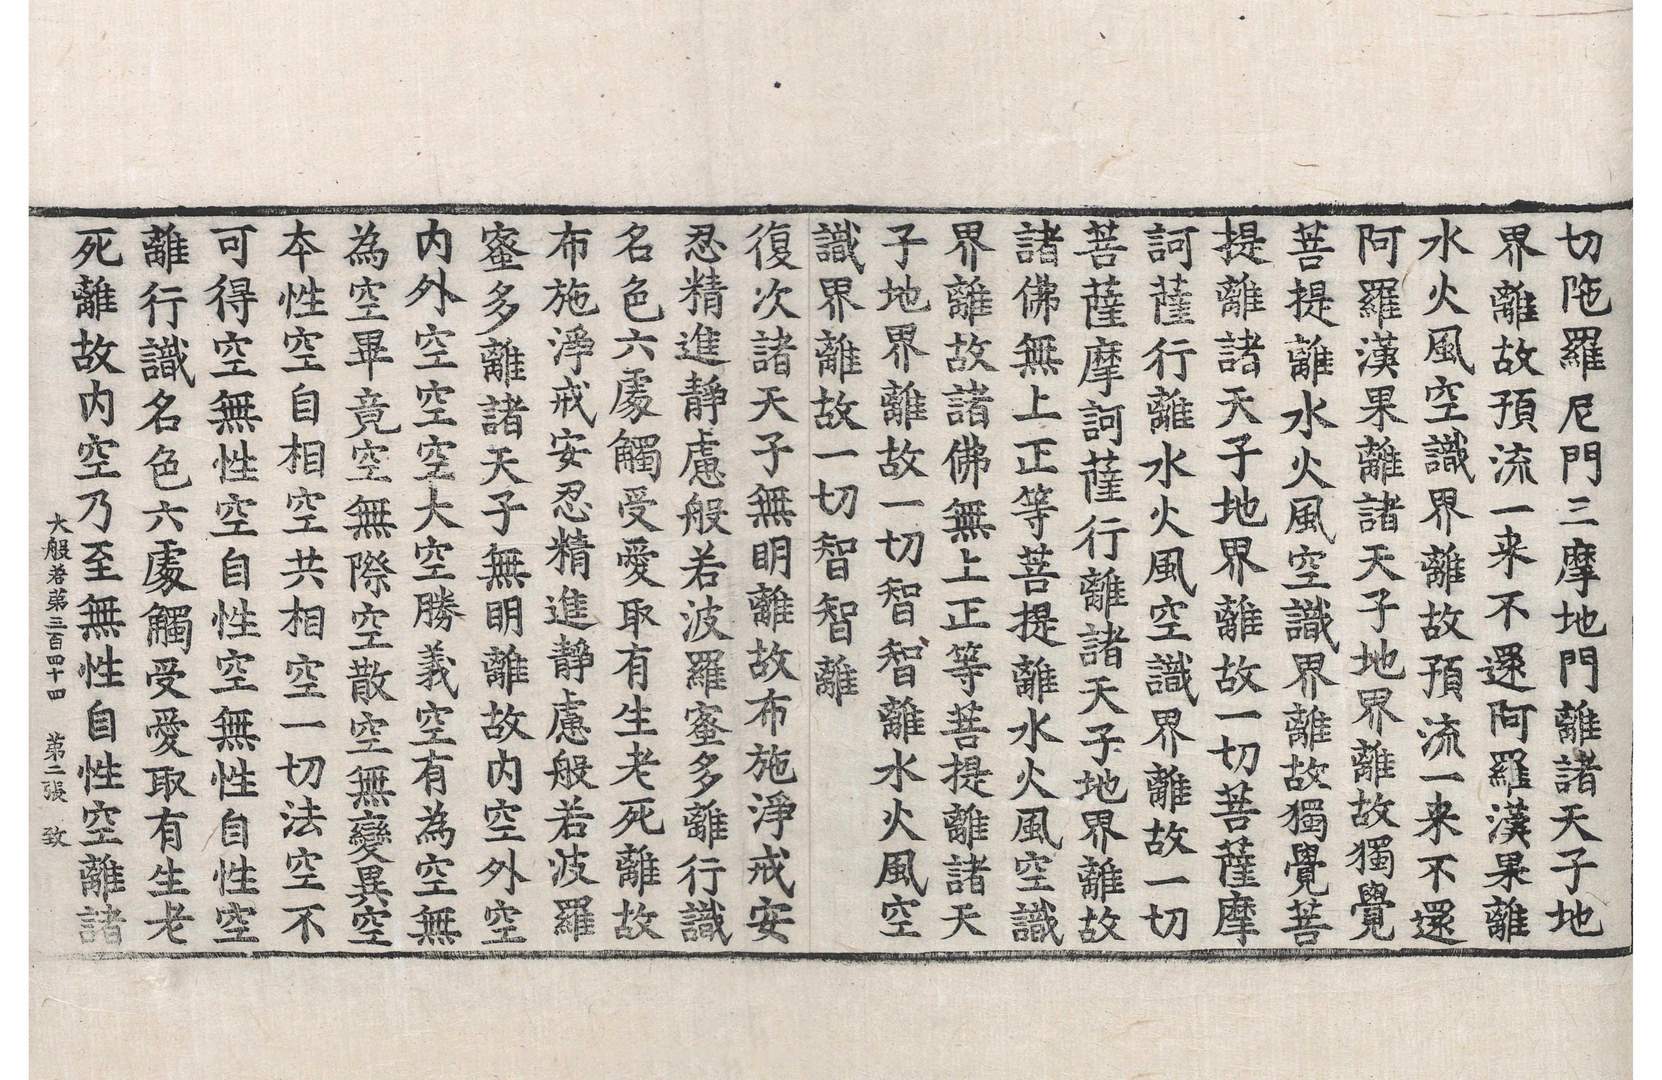 切陁羅尼門三摩地門離諸天子地
界離故預流一来不還阿羅漢果離
水火風空識界離故預流一来不還
阿羅漢果離諸天子地界離故獨覺
菩提離水火風空識界離故獨覺菩
提離諸天子地界離故一切菩薩摩
訶薩行離水火風空識界離故一切
菩薩摩訶薩行離諸天子地界離故
諸佛無上正等菩提離水火風空識
界離故諸佛無上正等菩提離諸天
子地界離故一切智智離水火風空
識界離故一切智智離
復次諸天子無明離故布施淨戒安
忍精進靜慮般若波羅蜜多離行識
名色六處觸受愛取有生老死離故
布施淨戒安忍精進靜慮般若波羅
蜜多離諸天子無明離故内空外空
内外空空空大空勝義空有為空無
為空畢竟空無際空散空無變異空
本性空自相空共相空一切法空不
可得空無性空自性空無性自性空
離行識名色六處觸受愛取有生老
死離故内空乃至無性自性空離諸
大般若第三百四十四 第二張 致